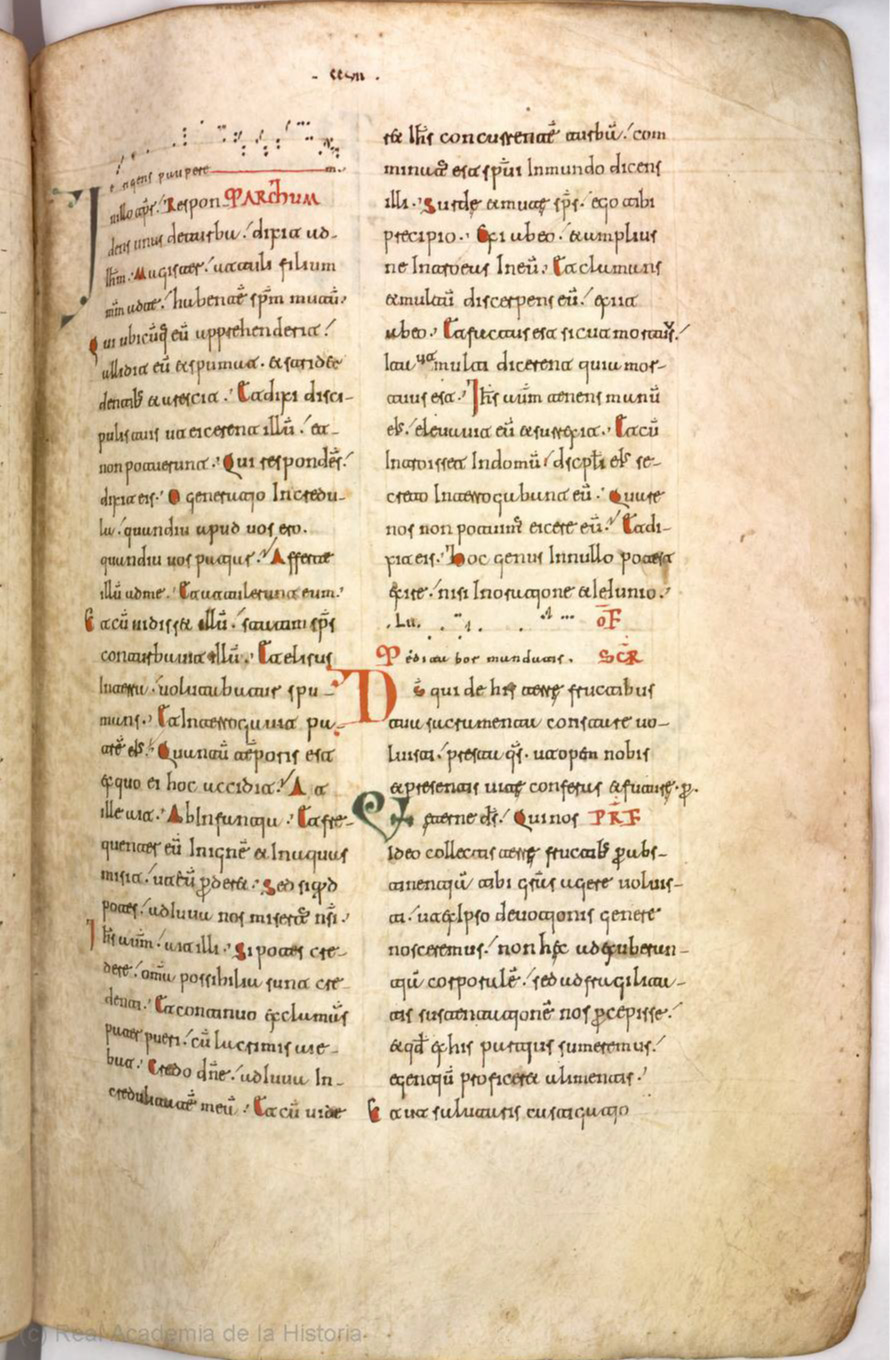 egens pauper
In illo tps. Respon MARChUM
dens unus deturba. dixit ad-
Ihm. Magister. attuli filium
mm ad te. habente spm mutu.
Qui ubicuq eu apprehenderit.
allidit eu et spumat. et stridet
dentib et arescit. Et dixi disci-
pulis tuis ut eicerent illu. et-
non potuerunt. Qui respondes.
dixit eis. O generatio incredu-
la. quandiu apud uos ero.
quandiu uos patiar. Afferte
illu ad me. Et attulerunt eum.
Et cu uidisset illu. statim sps
conturbauit illu. Et elisus
in terra. uolutabatur spu-
mans. Et interrogauit pa-
tre eis. Quantu teporis est
ex quo ei hoc accidit. At
ille ait. Ab infantia. Et fre-
quenter eu in igne et in aquas
misit. ut eu perderet. Sed siqd
potes. adiuua nos misertus nsi.
Ihs autm. ait illi. Si potes cre-
dere. omia possibilia sunt cre-
denti. Et continuo exclamas
pater pueri. cu lacrimis aie-
bat. Credo dne. adiuua in-
credulitate meu. Et cu uide
ret Ihs concurrente turbu. com
minatus est spui inmundo dicens
illi. Surde et mute sps. ego tibi
precipio. Exi ab eo. et amplius
ne introeas in eu. Et clamans
et multu discerpens eu. exiit
ab eo. Et factus est sicut mortuus.
Ita ut multi dicerent quia mor-
tuus est. Ihs autm tenens manu
eis. eleuauit eu et surrexit. Et cu
introisset in domu. discpli eis se-
creto interrogabant eu. Quare
nos non potuims eicere eu. Et di-
xit eis. Hoc genus in nullo potest
exire. nisi in oratione et ieiunio.
LU. OF
Pedi boc mundatis. SCR
Ds qui de his terre fructibus
tua sacramenta constare uo-
luisti. presta qs. ut opem nobis
et presentis uite conferas et future. p.
Eterne ds. Qui nos PRF
ideo collectis terre fructib p abs-
tinentia tibi gras agere uoluis-
ti. ut ex ipso deuotionis genere
nosceremus. non hec ad exuberan-
tia corporale. sed ad fragilita-
tis sustentatione nos pcepisse.
et qd ex his partius sumeremus.
egentiu proficeret alimentis.
Et ut saluatis castigatio